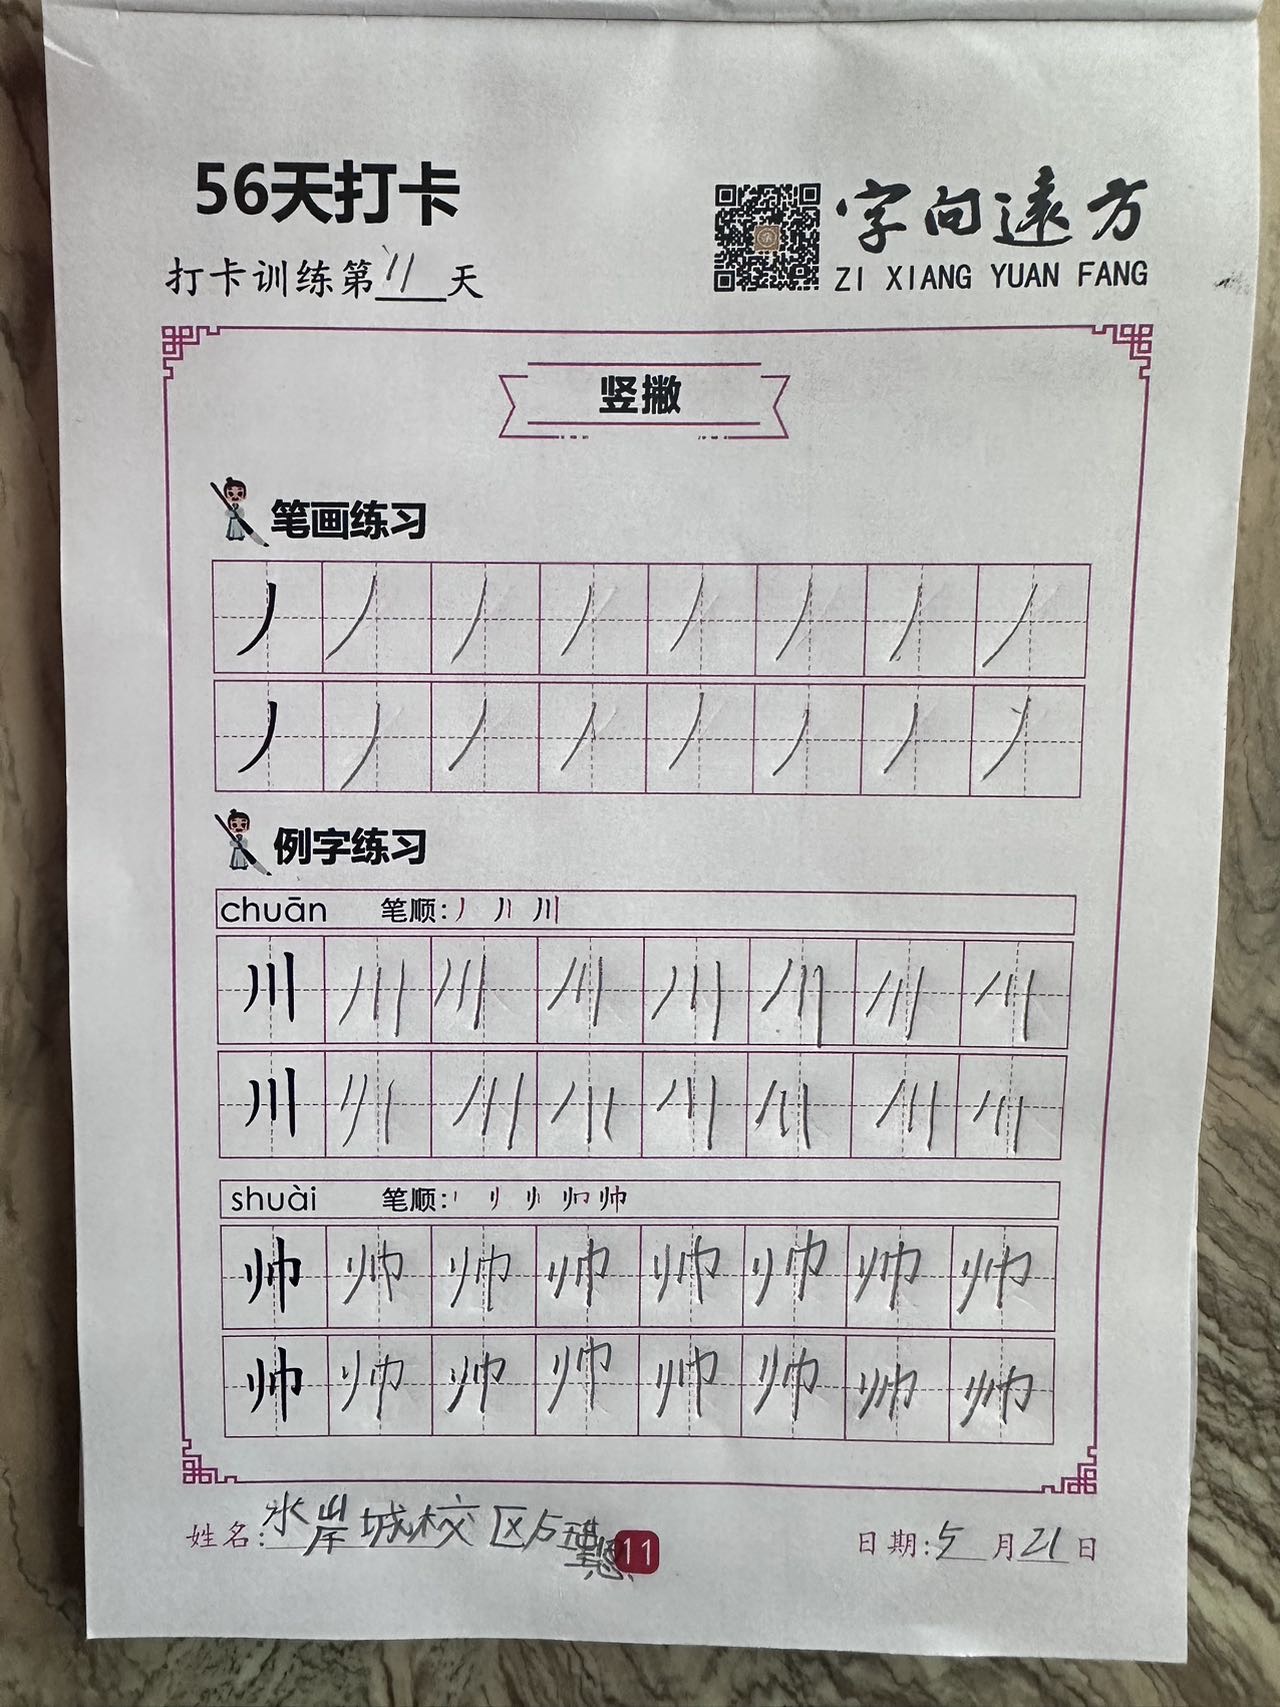 56天打卡
打卡训练第11天
字向遠方
ZI XIANG YUAN FANG
竖撇
笔画练习
丿丿丿丿丿丿丿丿
丿丿丿丿丿丿丿丿
例字练习
chuān 笔顺:
川川川川川川川川
川川川川川川川川
shuài 笔顺:
帅帅帅帅帅帅帅帅
帅帅帅帅帅帅帅帅
姓名:水岸城校区
11
日期:5月21日